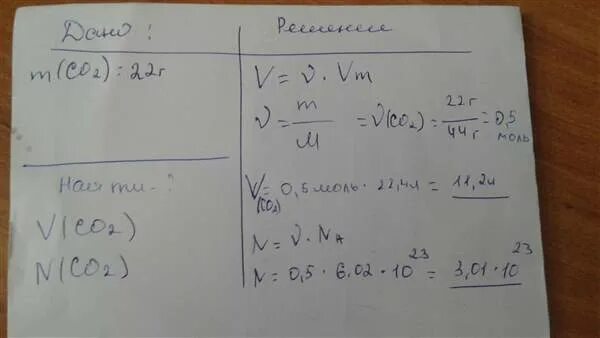 Дано:
m(CO₂) = 22г
Найти - ?
V(CO₂)
N(CO₂)
Решение
V = ν · Vm
ν = m/M = ν(CO₂) = 22г/44г = 0,5 моль
V(CO₂) = 0,5 моль · 22,4л = 11,2л
N = ν · NA
N = 0,5 · 6.02 · 10²³ = 3,01 · 10²³